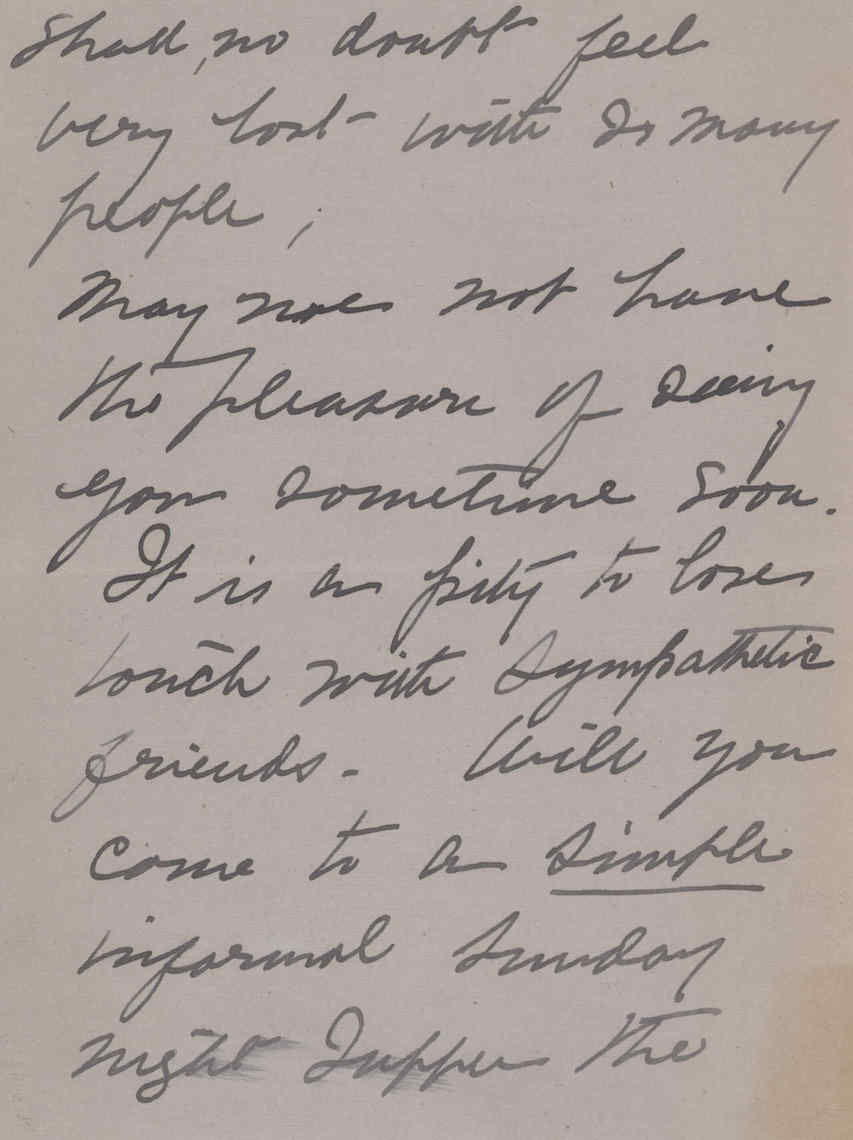 shall, no doubt feel
very lost with so many
people,
May we not have
the pleasure of seeing
you sometime soon.
It is a pity to lose
touch with sympathetic
friends - Will you
come to a simple
informal Sunday
night supper the